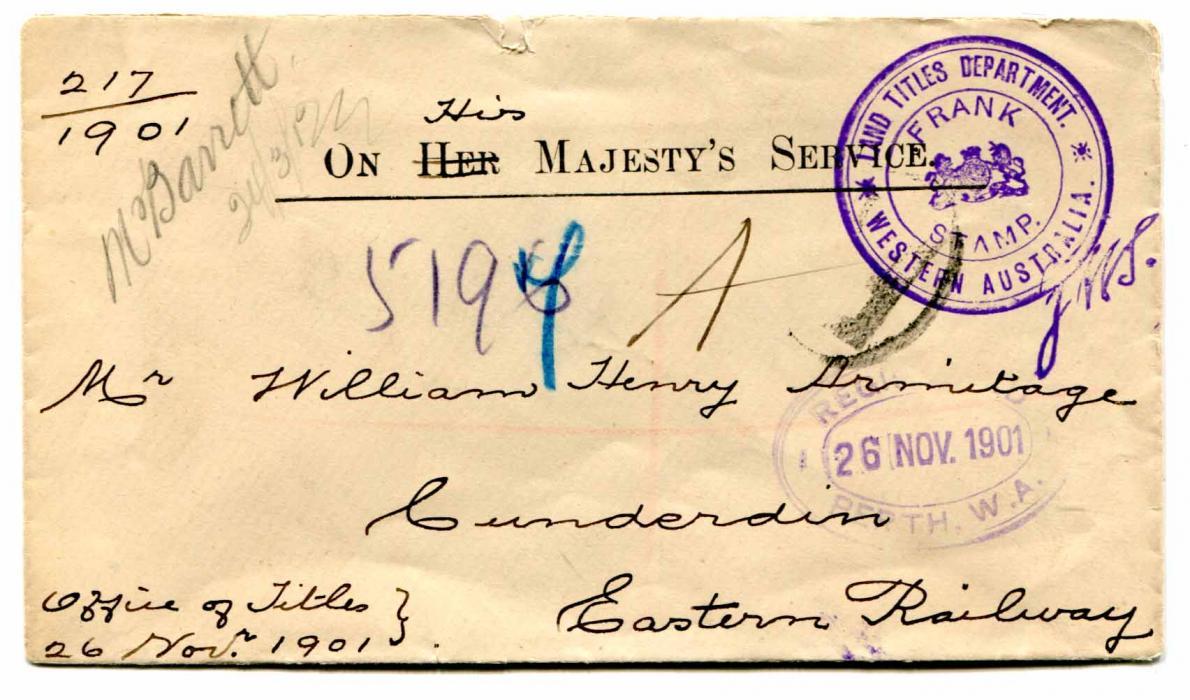 217
1901
McGarrott
His
ON HER MAJESTY'S SERVICE.
LAND TITLES DEPARTMENT.
WESTERN AUSTRALIA.
FRANK
STAMP.
519
A
Mr William Henry Armitage
REGISTERED
26 NOV. 1901
PERTH. W.A.
Cunderdin
Eastern Railway
Office of Titles
26 Novr. 1901